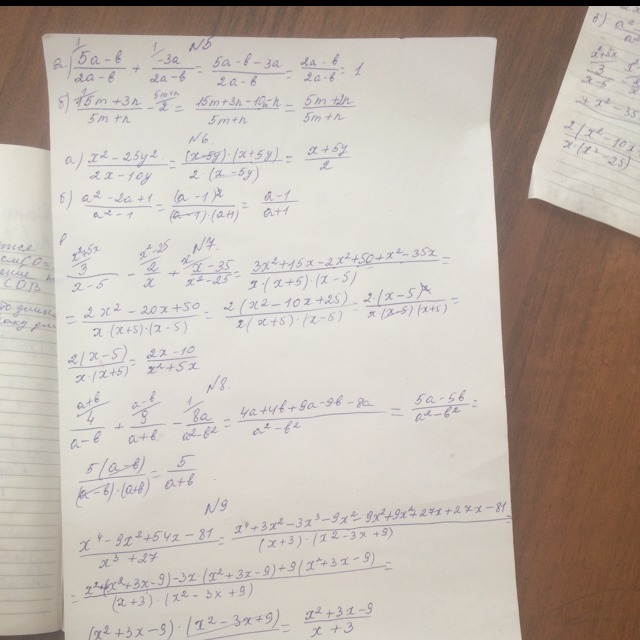 N5
а) (5a-b)/(2a-b) + (-3a)/(2a-b) = (5a-b-3a)/(2a-b) = (2a-b)/(2a-b) = 1
б) (15m+3n)/(5m+n) - 2 = (15m+3n-10m-n)/(5m+n) = (5m+2n)/(5m+n)
N6.
а) (x²-25y²)/(2x-10y) = ((x-5y)·(x+5y))/(2·(x-5y)) = (x+5y)/2
б) (a²-2a+1)/(a²-1) = (a-1)²/((a-1)·(a+1)) = (a-1)/(a+1)
N7.
3/(x-5) - 2/x + (x-35)/(x²-25) = (3x²+15x-2x²+50+x²-35x)/(x·(x+5)·(x-5)) =
= (2x²-20x+50)/(x·(x+5)·(x-5)) = (2(x²-10x+25))/(x(x+5)·(x-5)) = (2·(x-5)²)/(x(x-5)(x+5)) =
(2(x-5))/(x·(x+5)) = (2x-10)/(x²+5x)
N8.
4/(a-b) + 9/(a+b) - 8a/(a²-b²) = (4a+4b+9a-9b-8a)/(a²-b²) = (5a-5b)/(a²-b²) =
(5(a-b))/((a-b)·(a+b)) = 5/(a+b)
N9
(x⁴-9x²+54x-81)/(x³+27) = (x⁴+3x²-3x³-9x²-9x²+9x²+27x+27x-81)/((x+3)·(x²-3x+9)) =
= (x²(x²+3x-9)-3x·(x²+3x-9)+9(x²+3x-9))/((x+3)·(x²-3x+9)) =
(x²+3x-9)·(x²-3x+9) = (x²+3x-9)/(x+3)